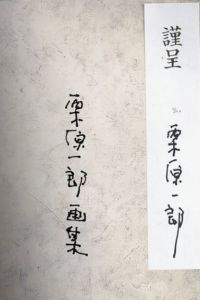 謹呈
栗原一郎
栗原一郎画集